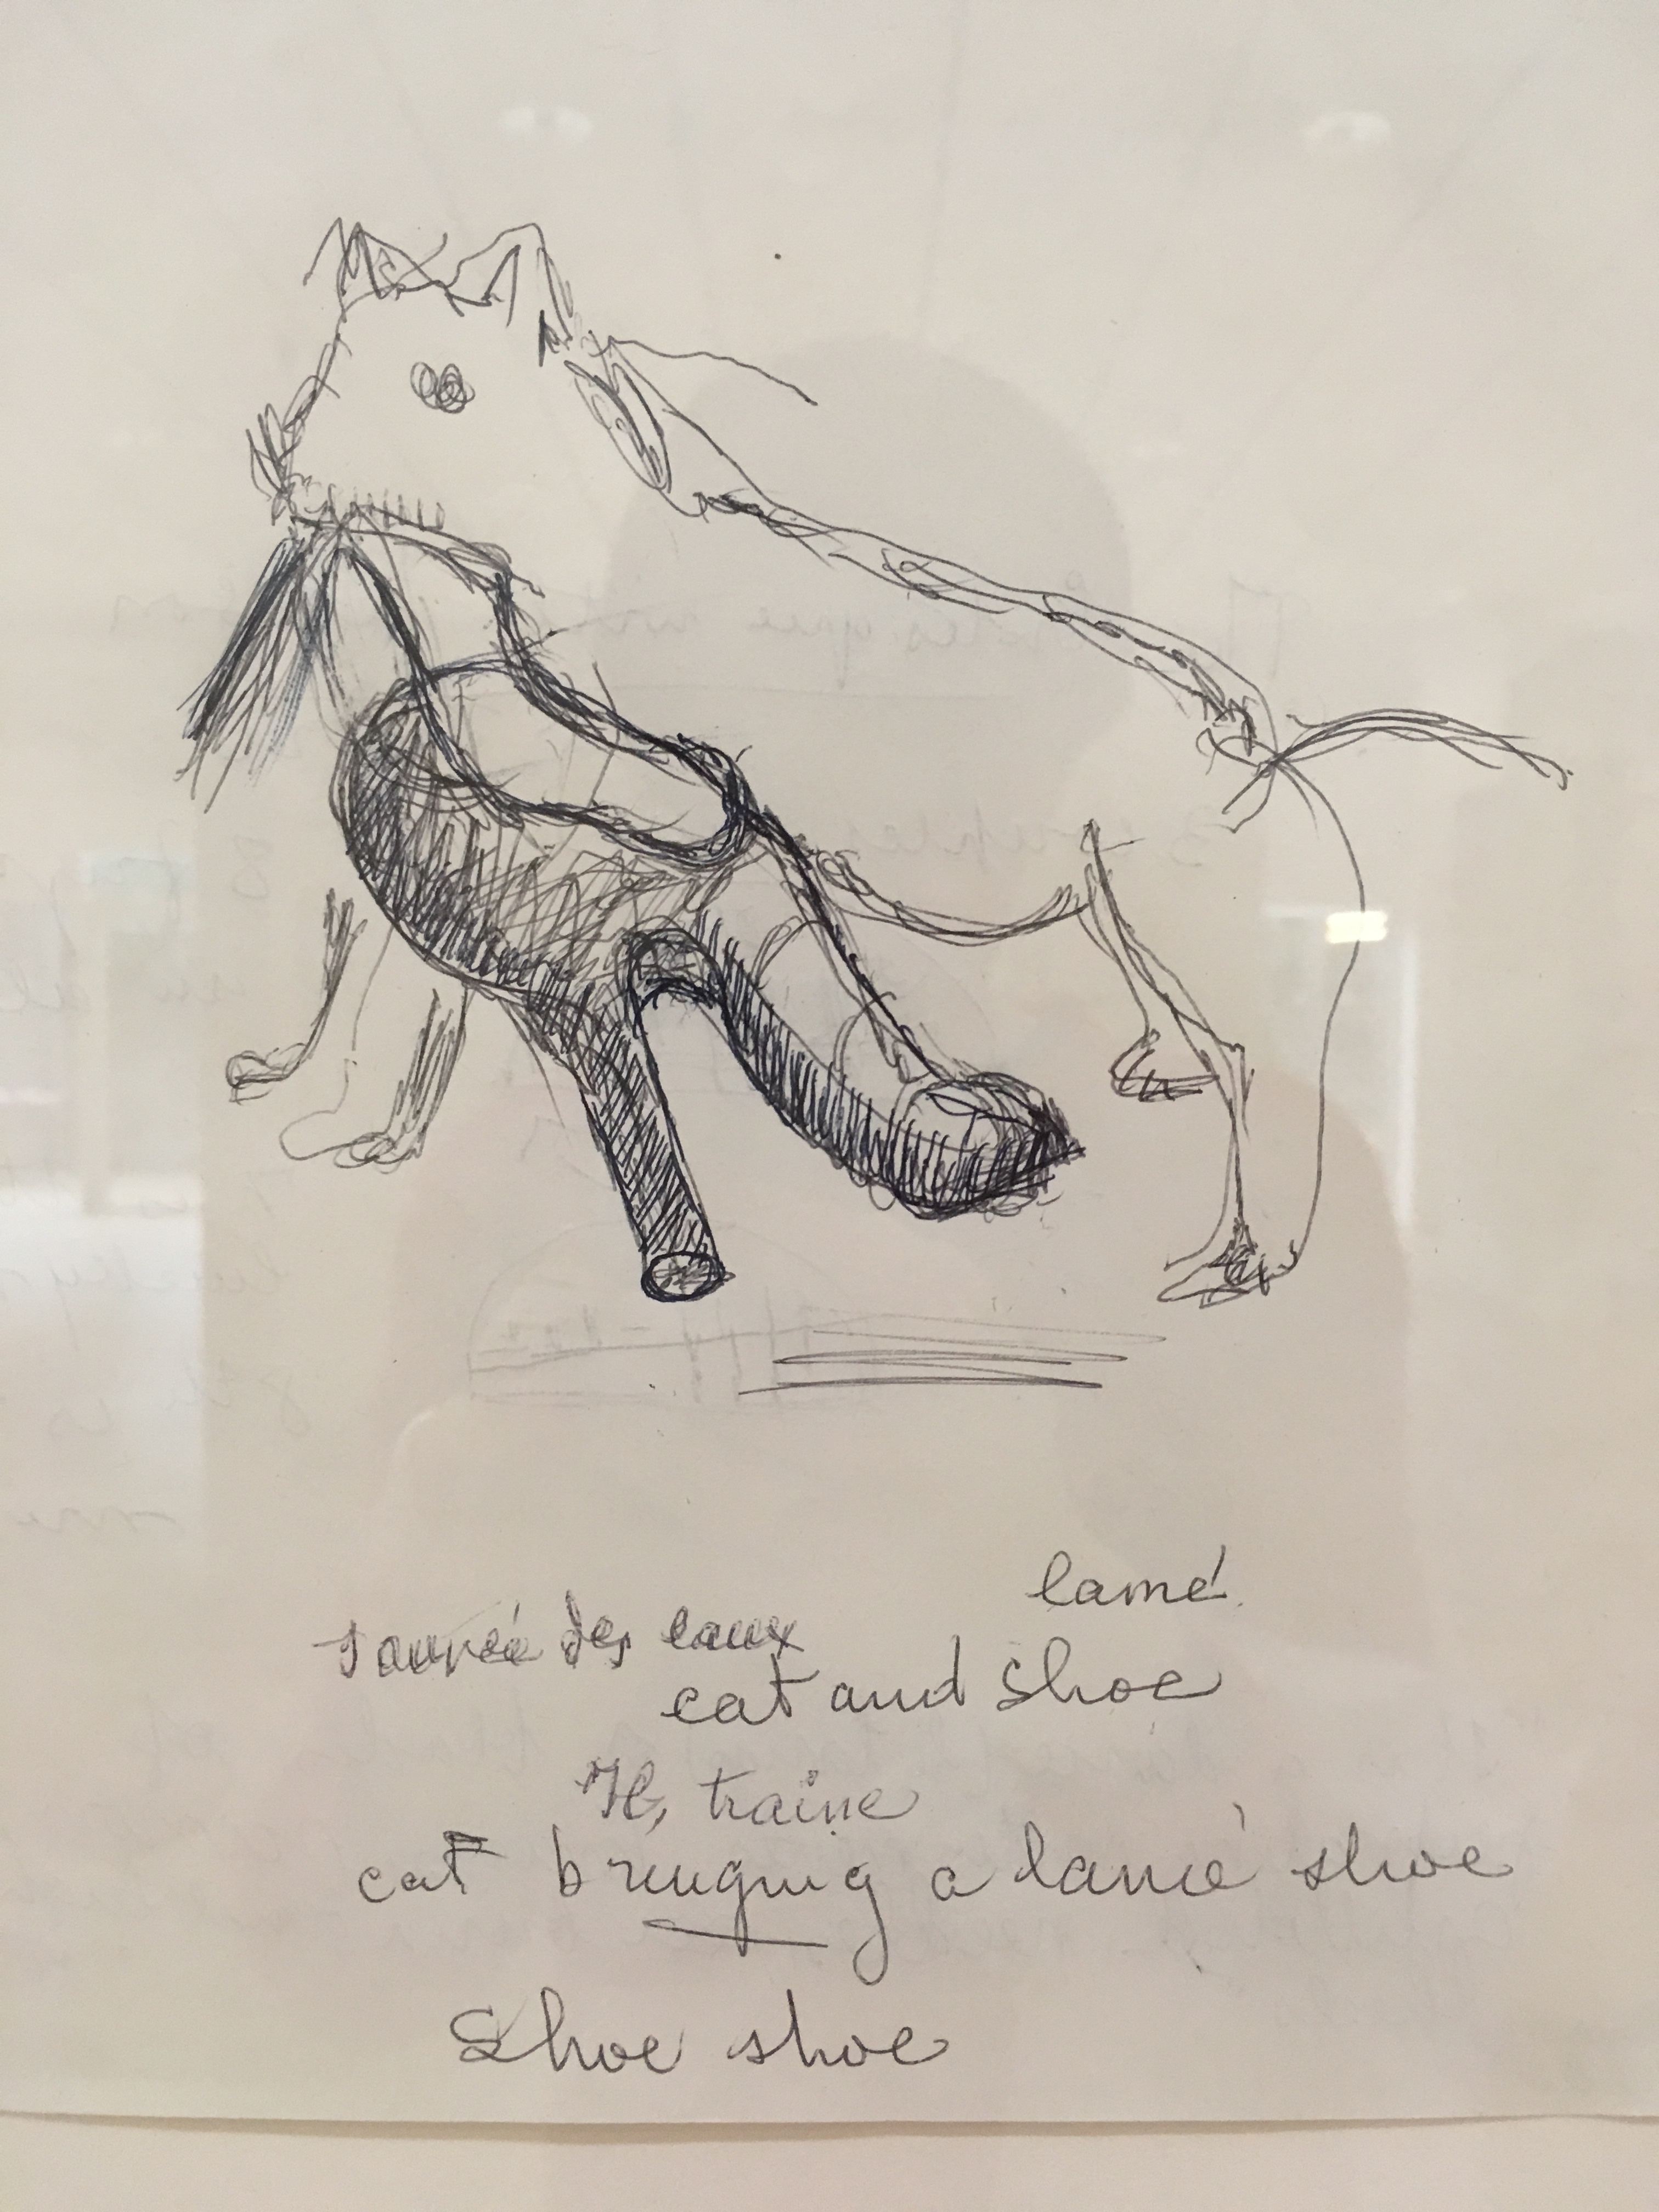 lamé
sauvée des eaux
cat and shoe
traine
cat bringing a lamé shoe
shoe shoe